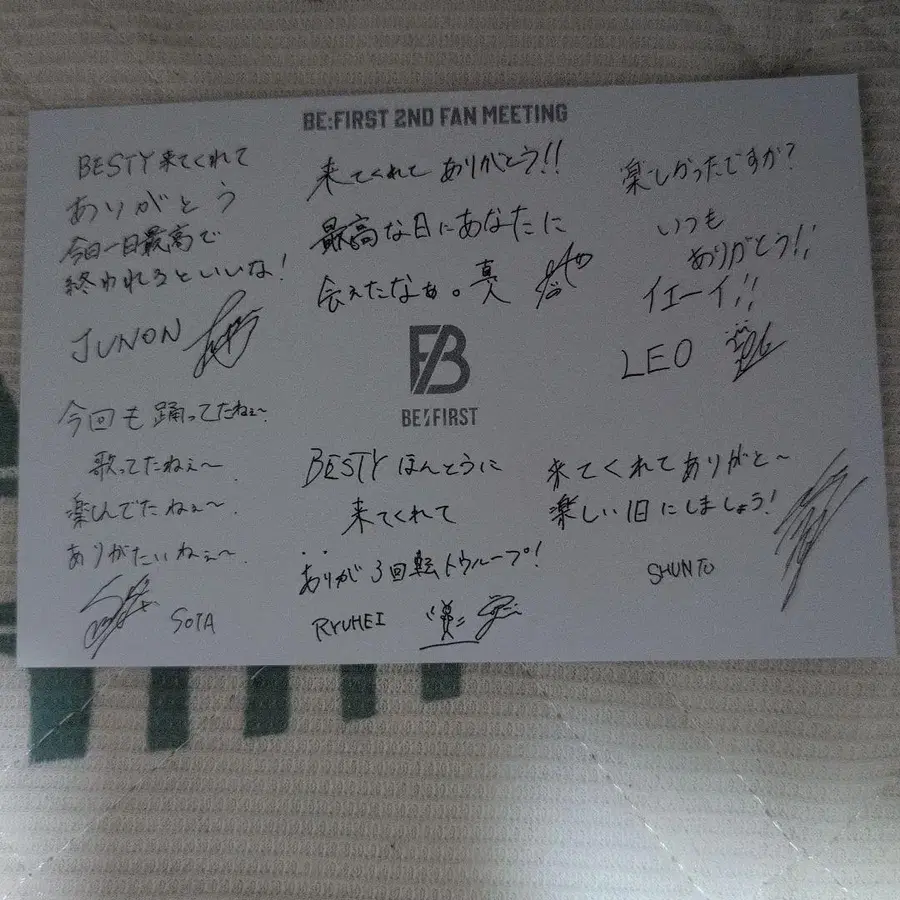 BE:FIRST 2ND FAN MEETING
BESTY 来てくれて
ありがとう
今日一日最高で
終われるといいな!
JUNON
来てくれて ありがとう!!
最高な日にあなたに
会えたなぁ。
楽しかったですか?
いつも
ありがとう!!
イエーイ!!
LEO
BE:FIRST
今回も踊ってたねぇ〜
歌ってたねぇ〜
楽しんでたねぇ〜
ありがたいねぇ〜
SOTA
BESTY ほんとうに
来てくれて
ありが3回転トゥループ!
RYUHEI
来てくれてありがと〜
楽しい1日にしましょう!
SHUNTO